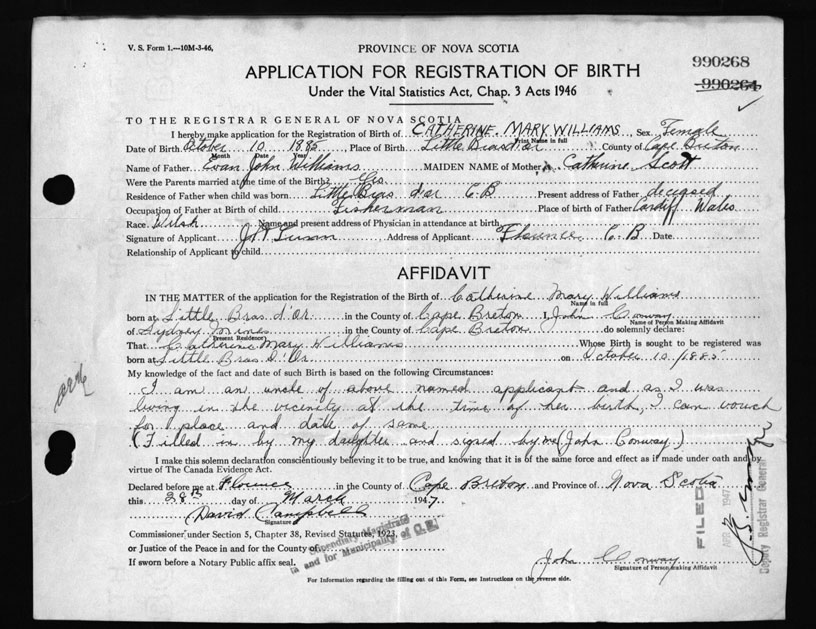 V. S. Form 1.—10M-3-46,
PROVINCE OF NOVA SCOTIA
990268
APPLICATION FOR REGISTRATION OF BIRTH
990264
Under the Vital Statistics Act, Chap. 3 Acts 1946
TO THE REGISTRAR GENERAL OF NOVA SCOTIA
I hereby make application for the Registration of Birth of CATHERINE. MARY WILLIAMS, Sex Female
Print Name in full
Date of Birth October 10 1885, Place of Birth Little Brasd'or County of Cape Breton
Month Date Year
Name of Father Evan John Williams MAIDEN NAME of Mother Catherine Scott
Were the Parents married at the time of the Birth? Yes
Residence of Father when child was born Little Bras d'or C.B Present address of Father deceased
Occupation of Father at Birth of child Fisherman Place of birth of Father Cardiff Wales
Race Welsh Name and present address of Physician in attendance at birth
Signature of Applicant Address of Applicant Florence C.B Date
Relationship of Applicant to child
AFFIDAVIT
IN THE MATTER of the application for the Registration of the Birth of Catherine Mary Williams
Name in full
born at Little Bras d'or in the County of Cape Breton I, John Conway
Name of Person Making Affidavit
of Sydney Mines in the County of Cape Breton do solemnly declare:
Present Residence
That Catherine Mary Williams Whose Birth is sought to be registered was
born at Little Bras D'Or on October 10/1885
My knowledge of the fact and date of such Birth is based on the following Circumstances:
I am an uncle of above named applicant and as I was
living in the vicinity at the time of her birth, I can vouch
for place and date of same
(Filled in by my daughter and signed by me (John Conway.)
I make this solemn declaration conscientiously believing it to be true, and knowing that it is of the same force and effect as if made under oath and by
virtue of The Canada Evidence Act.
Declared before me at Florence in the County of Cape Breton and Province of Nova Scotia
this 28th day of March 1947.
David Campbell
Signature
Commissioner under Section 5, Chapter 38, Revised Statutes, 1923,
or Justice of the Peace in and for the County of
Stipendiary Magistrate
in and for Municipality of C.B.
If sworn before a Notary Public affix seal.
John Conway
Signature of Person making Affidavit
For Information regarding the filling out of this Form, see Instructions on the reverse side.
FILED
1947
Deputy Registrar General